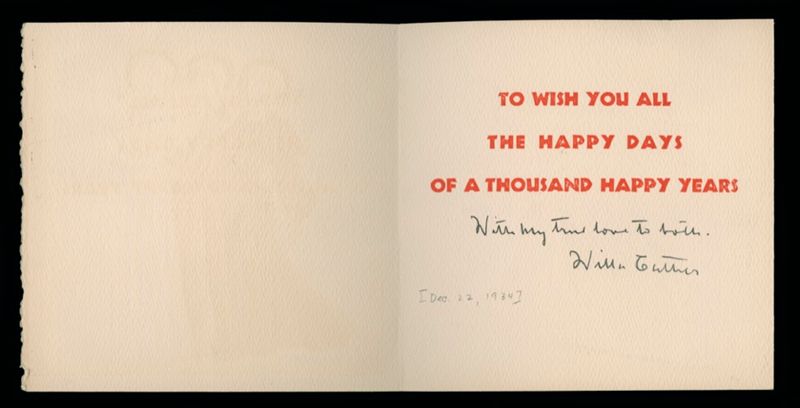 TO WISH YOU ALL
THE HAPPY DAYS
OF A THOUSAND HAPPY YEARS
With my true love to both.
Willa Cather
[Dec. 22, 1934]